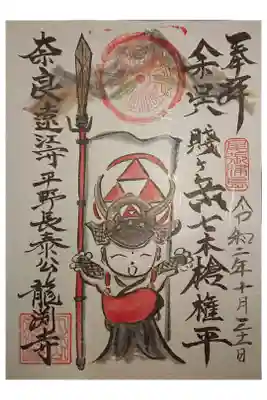 奉拝
令和二年十月三十一日
余呉 賤ヶ岳七本槍権平
奈良 遠江守平野長泰公 龍渕寺